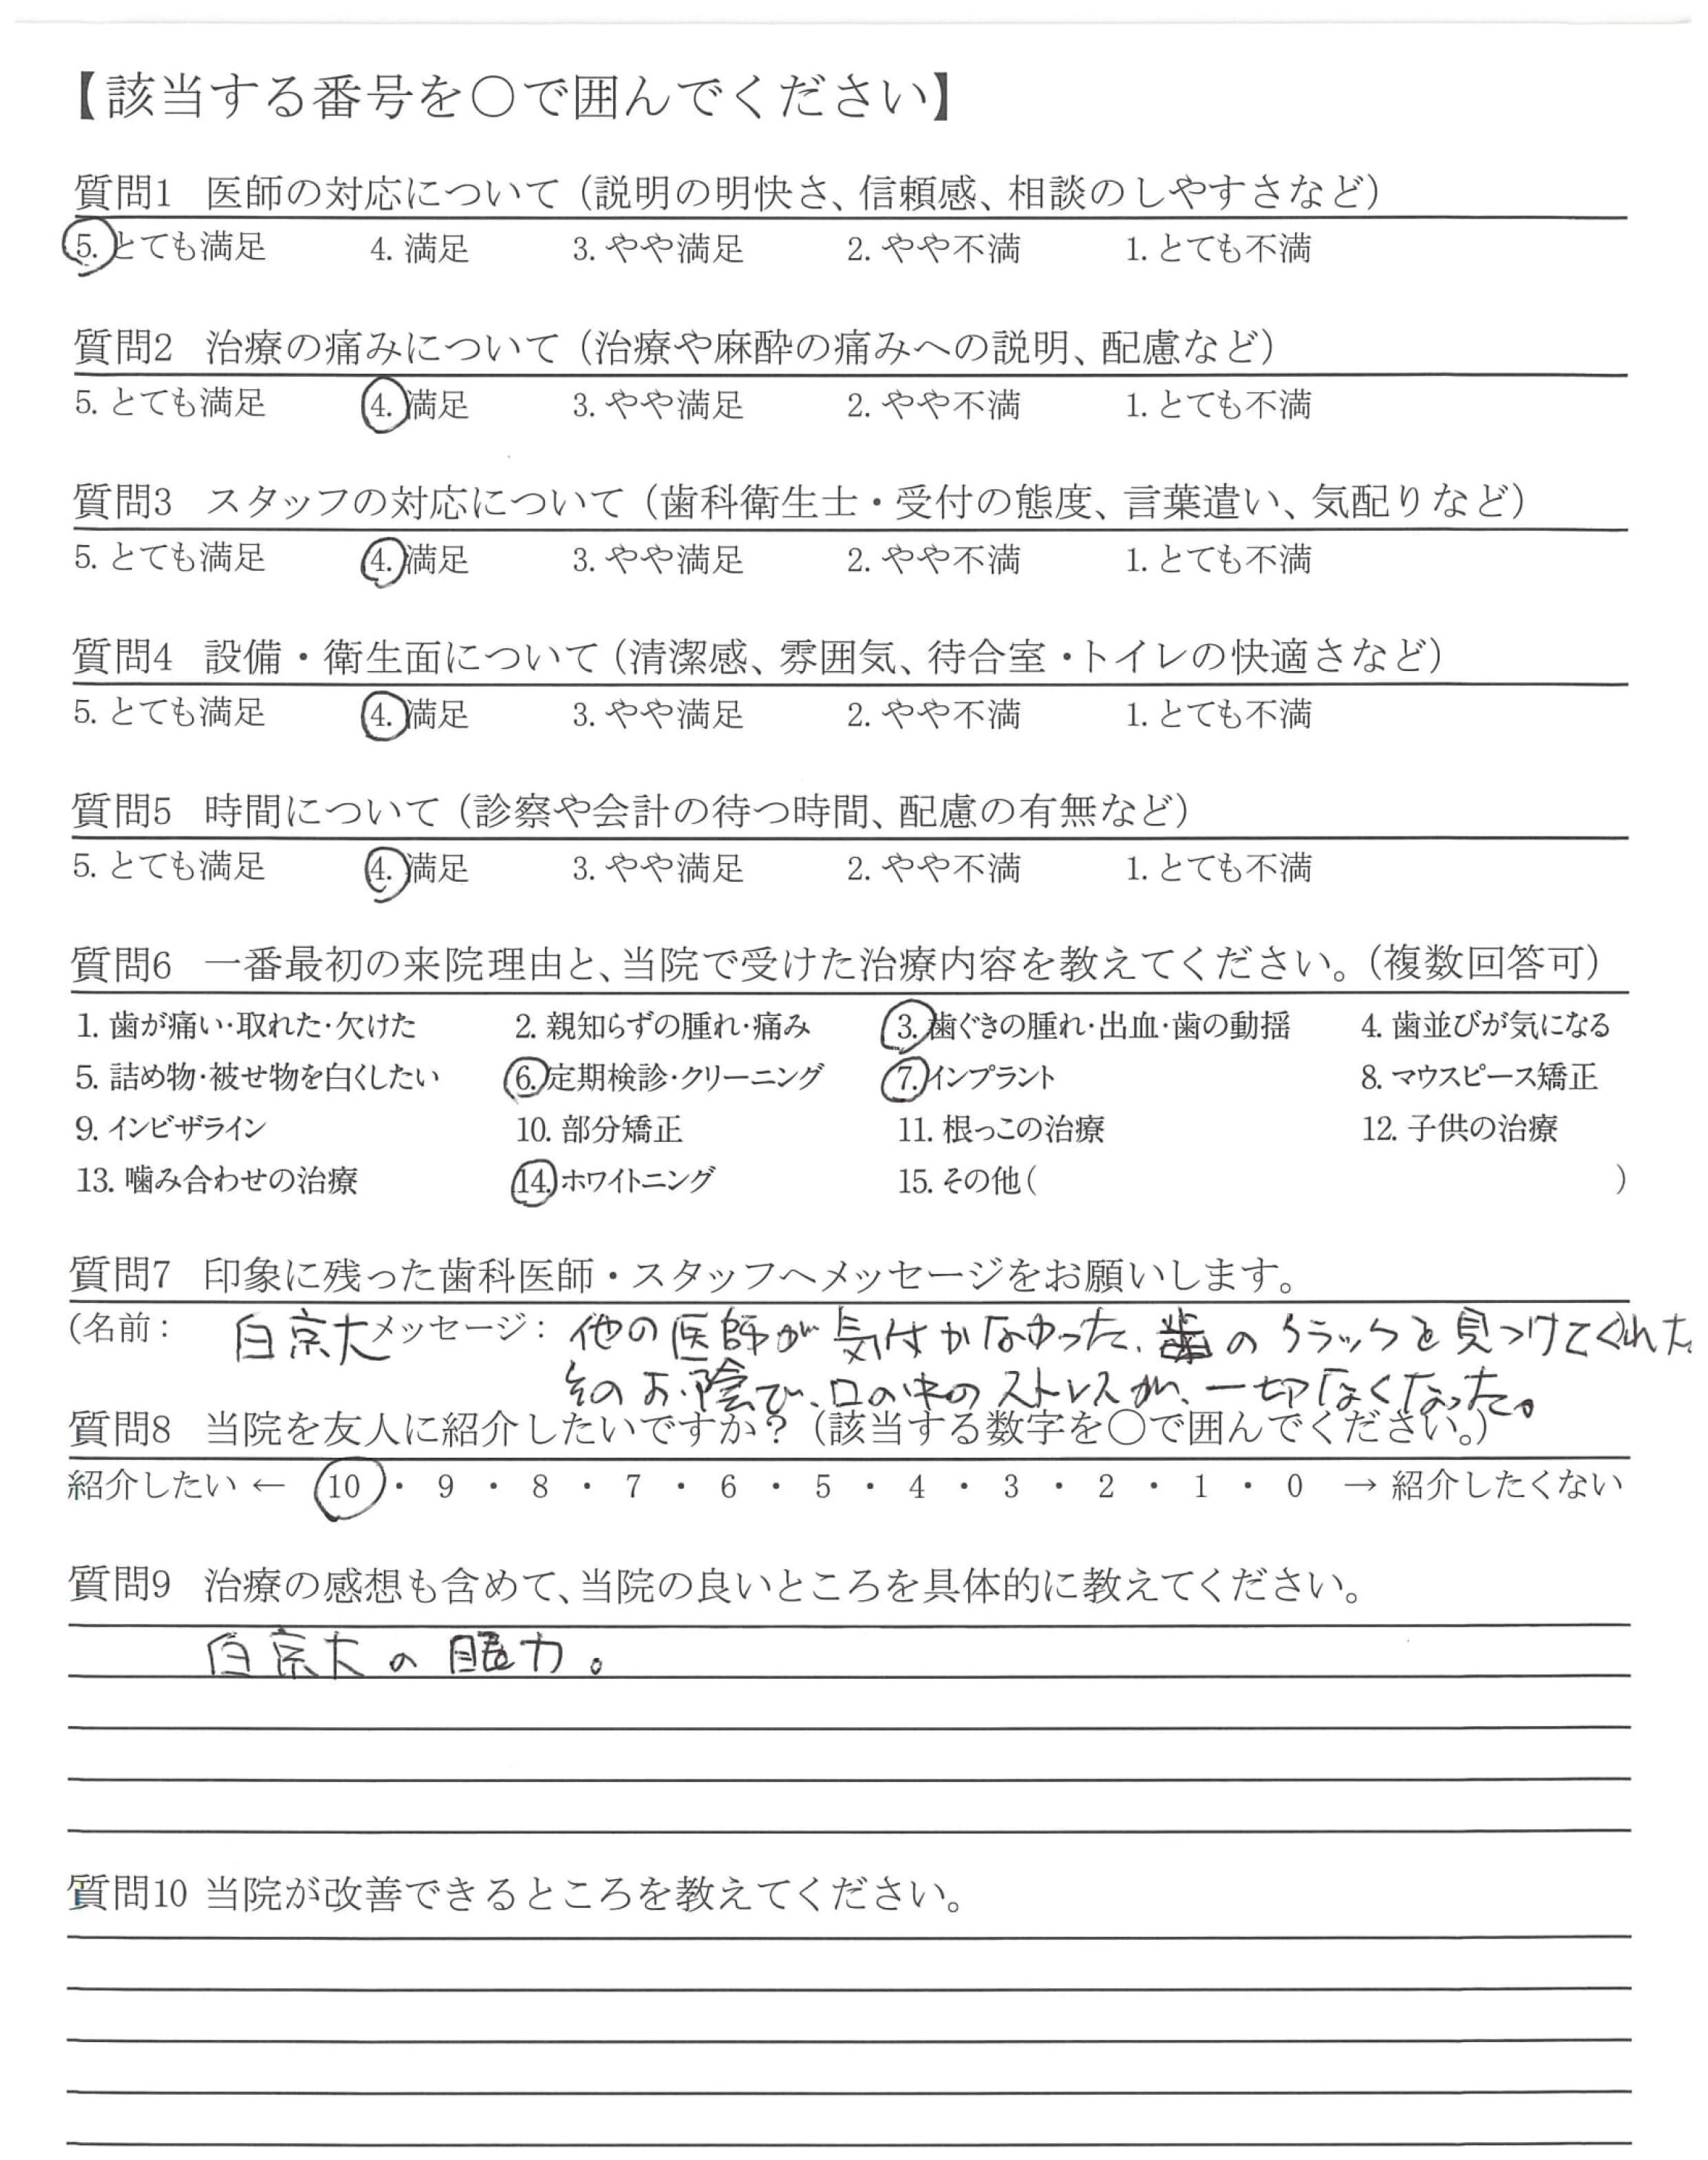 【該当する番号を〇で囲んでください】
質問1 医師の対応について（説明の明快さ、信頼感、相談のしやすさなど）
5. とても満足 4. 満足 3. やや満足 2. やや不満 1. とても不満
質問2 治療の痛みについて（治療や麻酔の痛みへの説明、配慮など）
5. とても満足 4. 満足 3. やや満足 2. やや不満 1. とても不満
質問3 スタッフの対応について（歯科衛生士・受付の態度、言葉遣い、気配りなど）
5. とても満足 4. 満足 3. やや満足 2. やや不満 1. とても不満
質問4 設備・衛生面について（清潔感、雰囲気、待合室・トイレの快適さなど）
5. とても満足 4. 満足 3. やや満足 2. やや不満 1. とても不満
質問5 時間について（診察や会計の待つ時間、配慮の有無など）
5. とても満足 4. 満足 3. やや満足 2. やや不満 1. とても不満
質問6 一番最初の来院理由と、当院で受けた治療内容を教えてください。（複数回答可）
1. 歯が痛い・取れた・欠けた 2. 親知らずの腫れ・痛み 3. 歯ぐきの腫れ・出血・歯の動揺 4. 歯並びが気になる
5. 詰め物・被せ物を白くしたい 6. 定期検診・クリーニング 7. インプラント 8. マウスピース矯正
9. インビザライン 10. 部分矯正 11. 根っこの治療 12. 子供の治療
13. 噛み合わせの治療 14. ホワイトニング 15. その他（ ）
質問7 印象に残った歯科医師・スタッフへメッセージをお願いします。
（名前： 白京大 メッセージ： 他の医師が気付かなかった、歯のクラックを見つけてくれた。
そのお陰で、口の中のストレスが、一切なくなった。
質問8 当院を友人に紹介したいですか？（該当する数字を〇で囲んでください。）
紹介したい ← 10 ・ 9 ・ 8 ・ 7 ・ 6 ・ 5 ・ 4 ・ 3 ・ 2 ・ 1 ・ 0 → 紹介したくない
質問9 治療の感想も含めて、当院の良いところを具体的に教えてください。
白京大の眼力。
質問10 当院が改善できるところを教えてください。